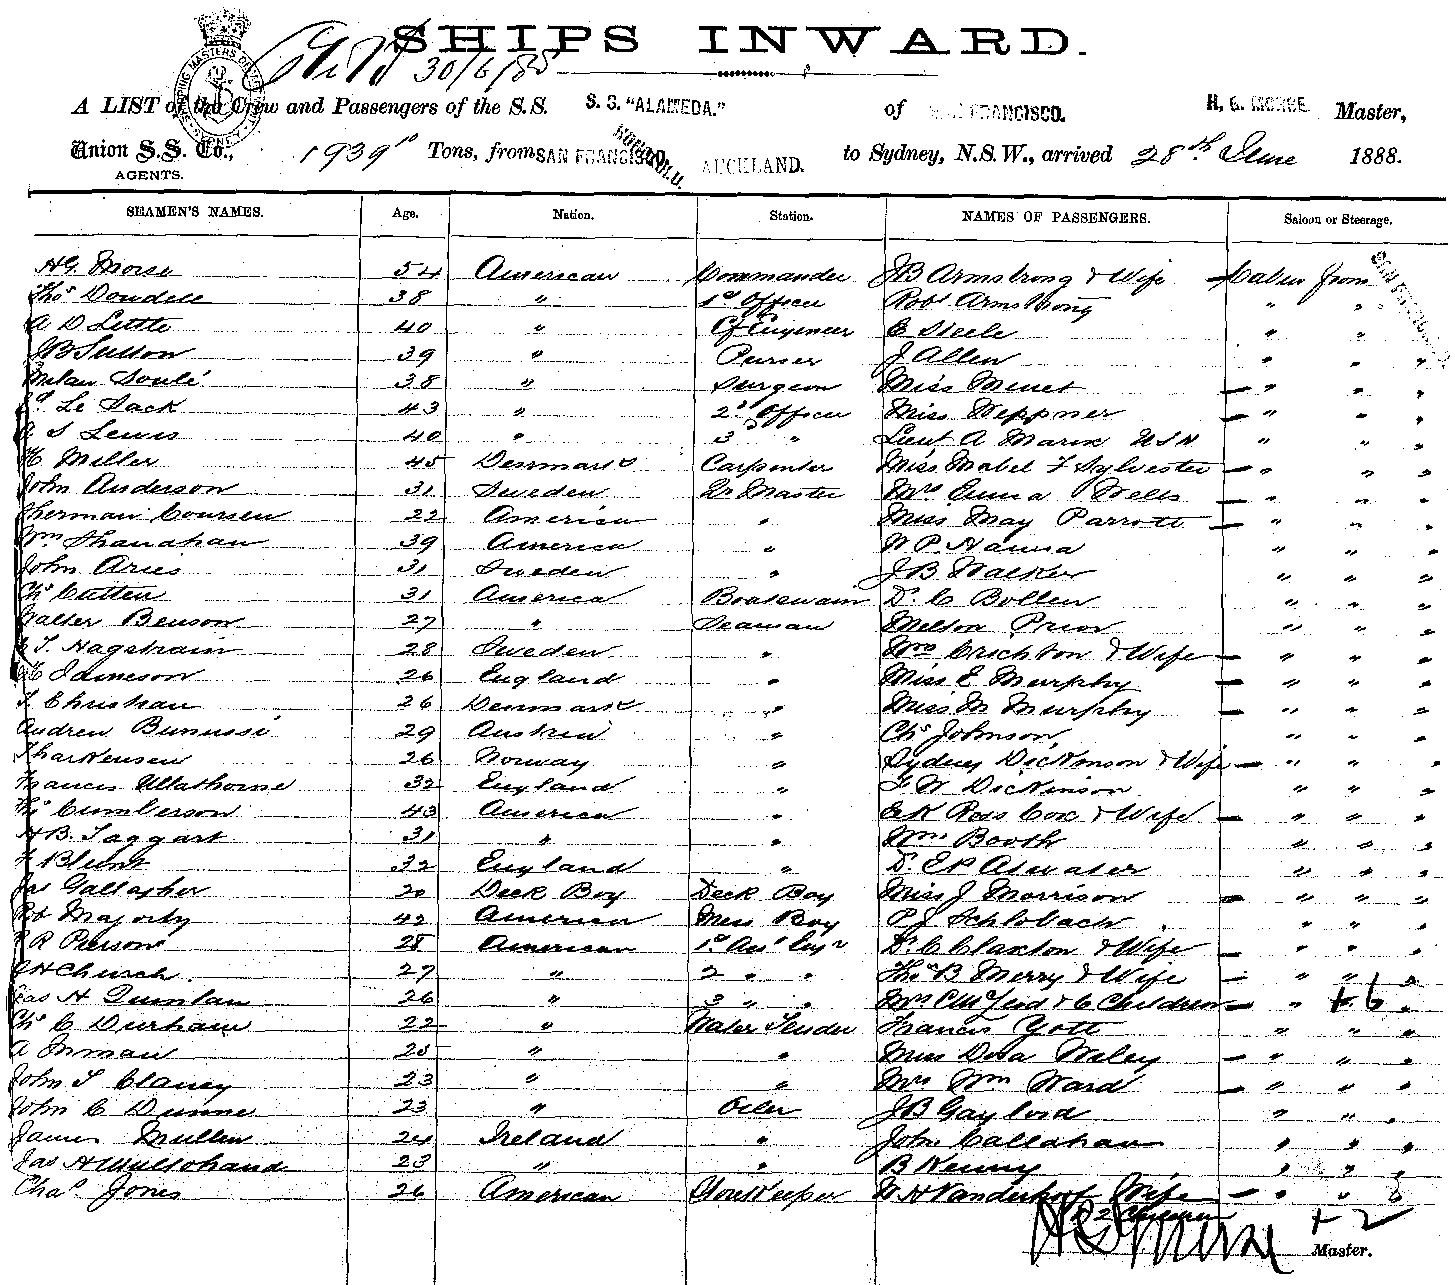 SHIPS INWARD.
30/6/88
A LIST of the Crew and Passengers of the S.S. S. S. "ALAMEDA." of FRANCISCO. H. G. MORSE Master,
Union S.S. Co., 1939 Tons, from SAN FRANCISCO HONOLULU. AUCKLAND. to Sydney, N.S.W., arrived 28th June 1888.
AGENTS.
SEAMEN'S NAMES. Age. Nation. Station. NAMES OF PASSENGERS. Saloon or Steerage.
HG. Morse 54 American Commander JB Armstrong & Wife — Cabin from SAN FRANCISCO
Thos Dowdell 38 " 1st Officer Robt Armstrong " "
A D Little 40 " Cf Engineer C Steele " "
JB Sutton 39 " Purser J Allen " " "
Milan Soulé 38 " Surgeon Miss Menet — " " "
Le Sack 43 " 2d Officer Miss Weppner — " " "
A S Lewis 40 " 3 " Lieut A Marix USN " " "
Miller 45 Denmark Carpenter Miss Mabel F Sylvester — " " "
John Anderson 31 Sweden Qr Master Mrs Emma Wells — " " "
Sherman Coursen 22 America " Miss May Parrott — " " "
Wm Shanahan 39 America " W P. Hanna " " "
John Aries 31 Sweden " JB Walker " " "
Chs Cutten 31 America Boatswain Dr. C Bollen " " "
Walter Benson 27 " Seaman Melton Prior " " "
T. Hagstrain 28 Sweden " Wm Crichton & Wife — " " "
Jameson 26 England " Miss E Murphy — " " "
Christian 26 Denmark " Miss M Murphy — " " "
Andrew Bunussi 29 Austria " Chs Johnson " " "
Tharkensen 26 Norway " Sydney Dickinson & Wife — " " "
Francis Ullathorne 32 England " F W Dickinson " " "
Thos Cumberson 43 America " EK Ross Cox & Wife — " " "
HB. Taggart 31 " " Wm Booth " " "
F Blunt 32 England " Dr. EP Atwater " " "
Jas Gallagher 20 Deck Boy Deck Boy Miss J Morrison — " " "
Rob Majorty 42 America Mess Boy P.J Schlobach " " "
R Pierson 25 American 1st Ass Engr Dr. C Claxton & Wife — " " "
Church 27 " 2 " " Thos B Merry & Wife — " " "
Jas H Quinlan 26 " 3 " " Mrs & 6 Children — " +6 "
Chs C Durham 22 " Water Tender Francis Yott " " "
A Inman 25 " " Miss Dora Waley — " " "
John T Clancy 23 " " Mrs Wm Ward — " " "
John C Dunne 23 " Oiler JB Gaylord " " "
James Mullin 24 Ireland " John Callahan " " "
Jas H 23 " " B Kenny " " "
Chas Jones 26 American Storekeeper W H Vanderhoof Wife — " " "
& 2 Children +2
HG Morse Master.